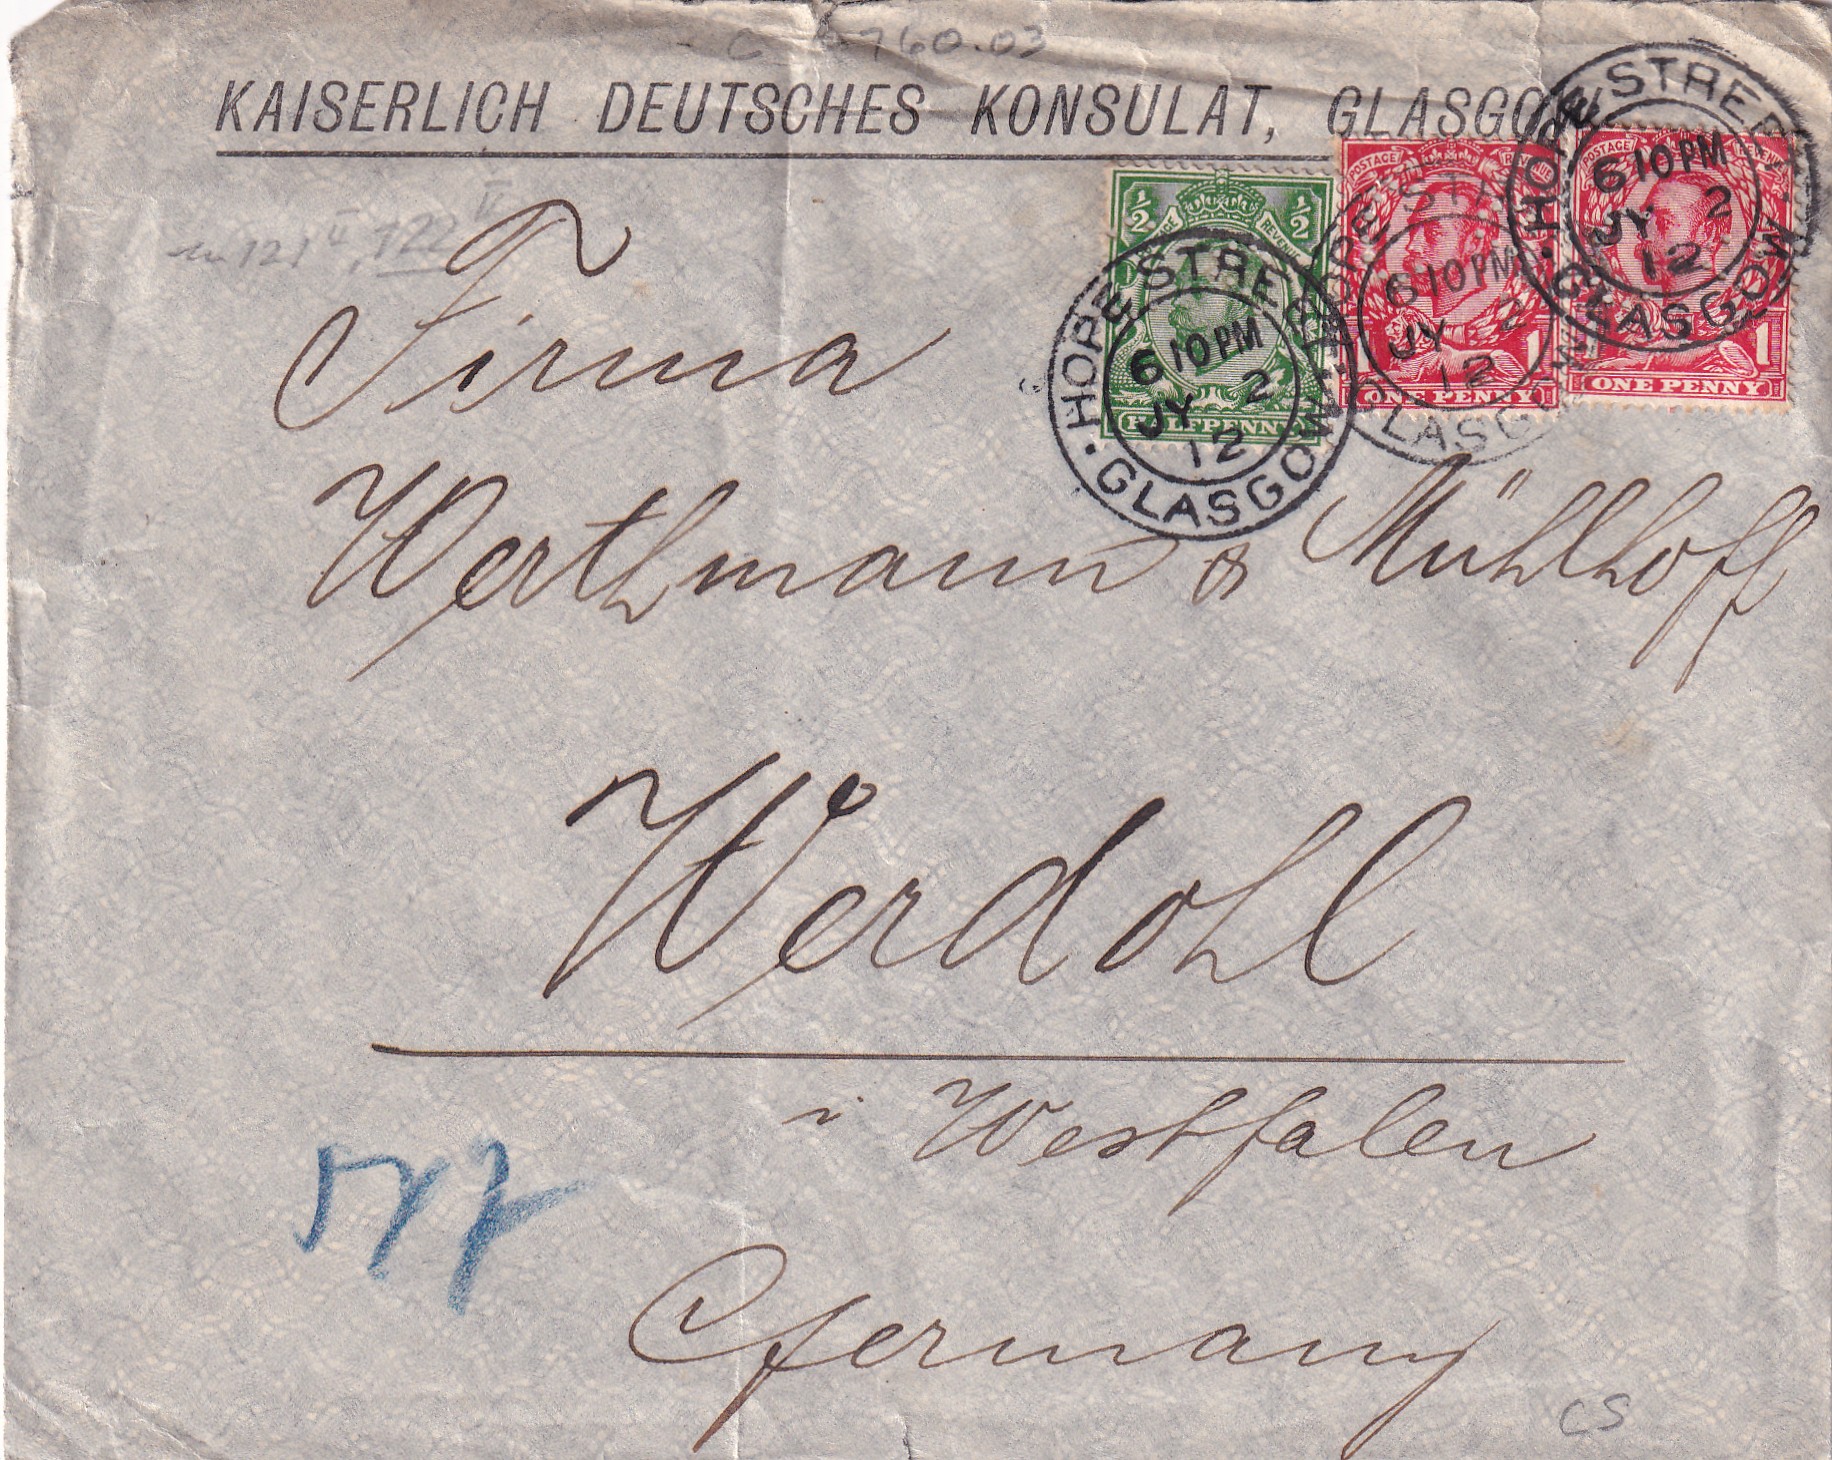 760.03
KAISERLICH DEUTSCHES KONSULAT, GLASGOW
121 II, 122 II
½ ½
POSTAGE REVENUE
HALFPENNY
POSTAGE REVENUE
1
ONE PENNY
POSTAGE REVENUE
1
ONE PENNY
HOPE STREET
6 10 PM
JY 2
12
GLASGOW
HOPE STREET
6 10 PM
JY 2
12
GLASGOW
HOPE STREET
6 10 PM
JY 2
12
GLASGOW
Firma
Werthmann & Mühlhoff
Werdohl
i Westfalen
Germany
CS